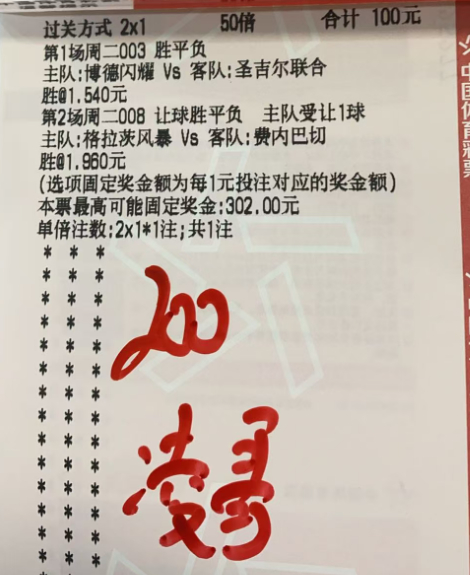 过关方式 2x1 50倍 合计 100元
第1场周二003 胜平负
主队:博德闪耀 Vs 客队:圣吉尔联合
胜@1.540元
第2场周二008 让球胜平负 主队受让1球
主队:格拉茨风暴 Vs 客队:费内巴切
胜@1.960元
(选项固定奖金额为每1元投注对应的奖金额)
本票最高可能固定奖金:302.00元
单倍注数:2x1*1注;共1注
* * *
* * *
* * *
* * *
* * *
* * *
* * *
* * *
* * *
* * *
* * *
* * *
* * *
* * *
200
凌哥
中国体育彩票